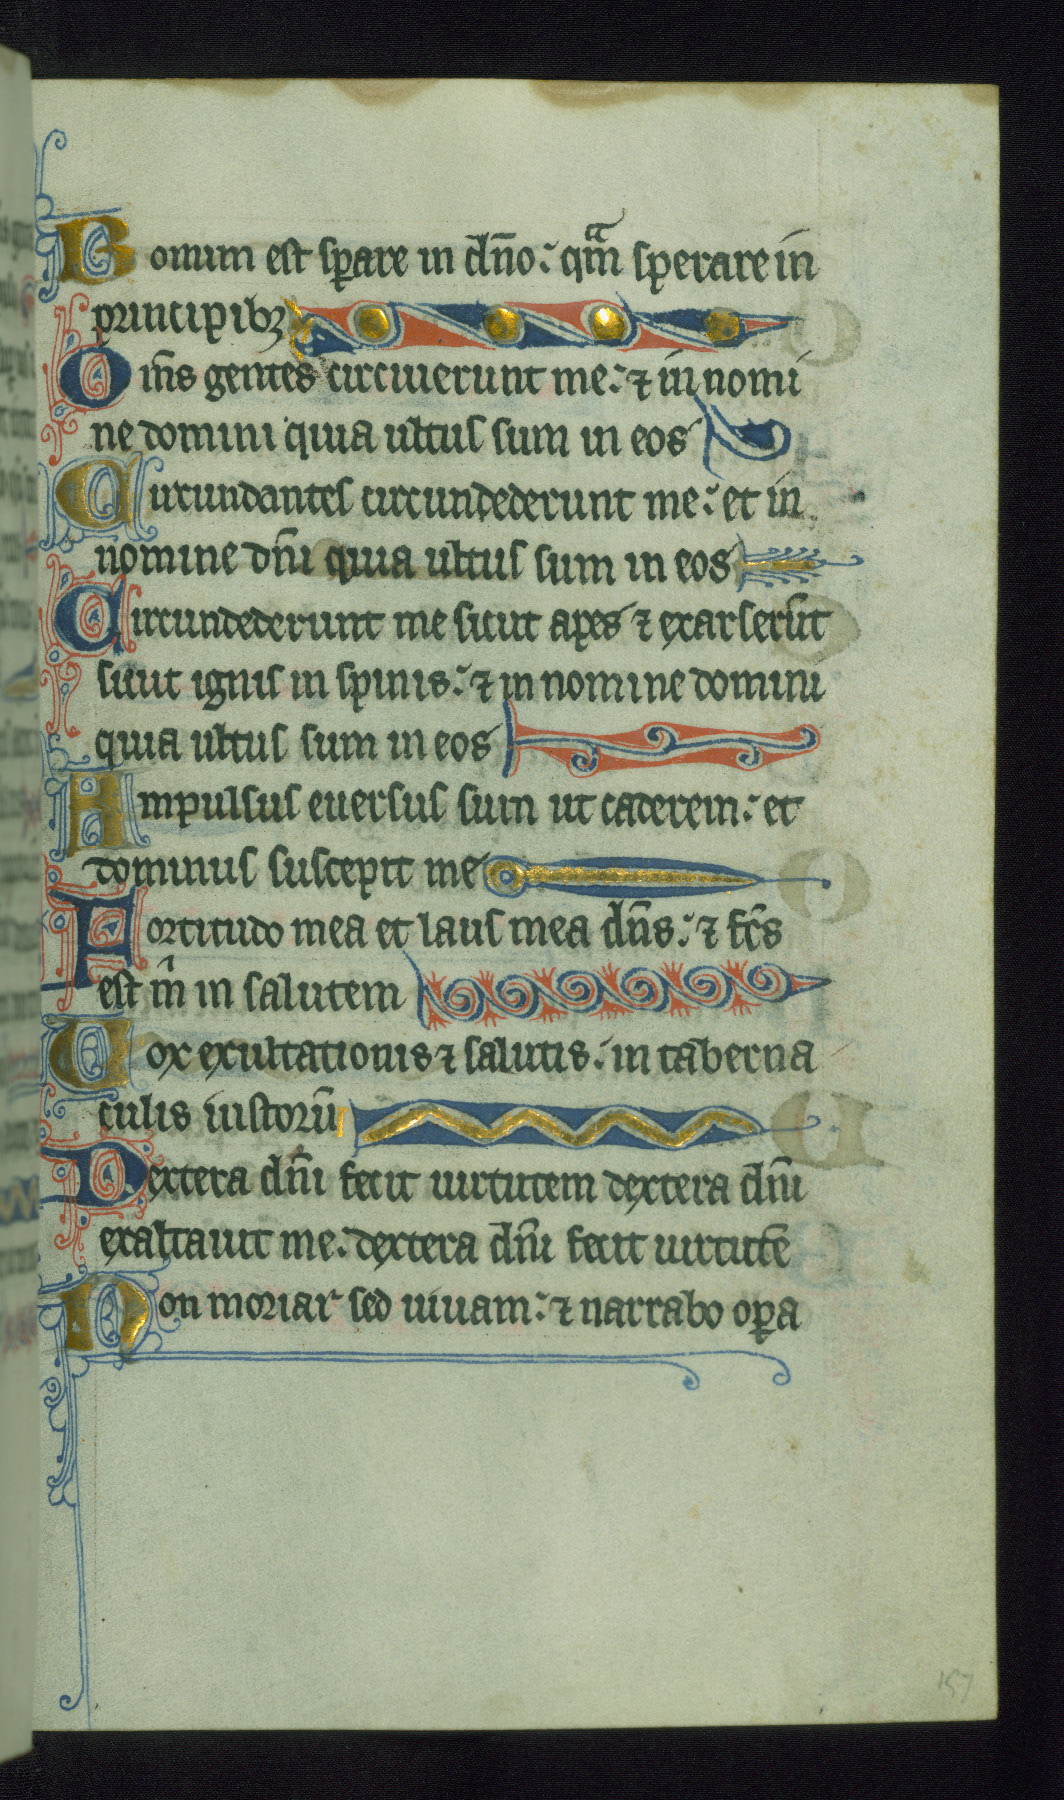 Bonum est sꝑare in dn̄o: qm̄ᵃ sperare in
principibꝫ
Om̄s gentes circuierunt me: ⁊ in nomi
ne domini quia ultus sum in eos
Circundantes circundederunt me: et in
nomine dn̄i quia ultus sum in eos
Circundederunt me sicut apes ⁊ exarserūt
sicut ignis in spinis: ⁊ in nomine domini
quia ultus sum in eos
Impulsus euersus sum ut caderem: et
dominus suscepit me
Fortitudo mea et laus mea dn̄s: ⁊ fc̄s
est m̄ in salutem
Uox exultationis ⁊ salutis: in taberna
culis iustorū
Dextera dn̄i fecit uirtutem dextera dn̄i
exaltauit me: dextera dn̄i fecit uirtutē
Non moriar sed uiuam: ⁊ narrabo oꝑa
157